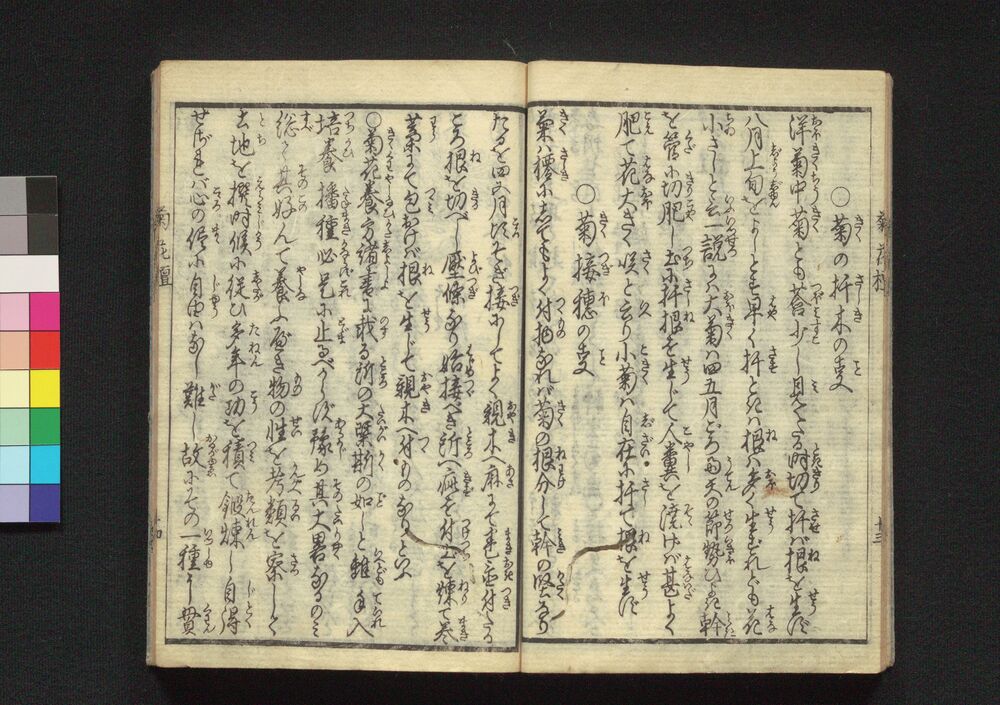 ○菊の扦木の事
洋菊中菊とも莟少し見へたる時切て扦ば根を生ず
八月上旬をよしとす早く扦ときは根は多く生ずれども花
小さしと云一説に又大菊は四五月ごろ
を管に切肥し土に扦根を生じて人糞を澆げば甚よく
肥て花大きく咲と云り小菊は自在に扦て根を生ず
○菊接穂の事
菊は接にしてもよく付物なれば菊の根分して幹の堅なり
たるを四五月頃そぎ接にしてよく親木へ麻にて巻付たる
ころ根を切べし壓條なり始接べき所へ
藁にて包おけば根を生じて親木へ付ものなりといふ
○菊花養方諸書に載る所の大槩斯の如しと雖手入
培養播種必是に止るべからず豫め其大畧なるのミ
総て其好んて養ふ處の物の性を考類を察しと
土地を撰時候に従ひ多年の功を積て鍛煉し自得
せざれバ心の侭に自由はなし難し故にその一種より
菊花壇
十三
菊花壇
十四